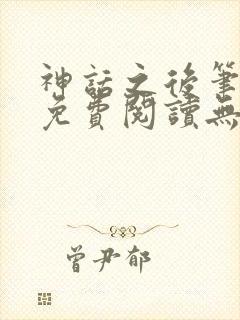 神話之後筆
免費閱讀無
曾尹郁